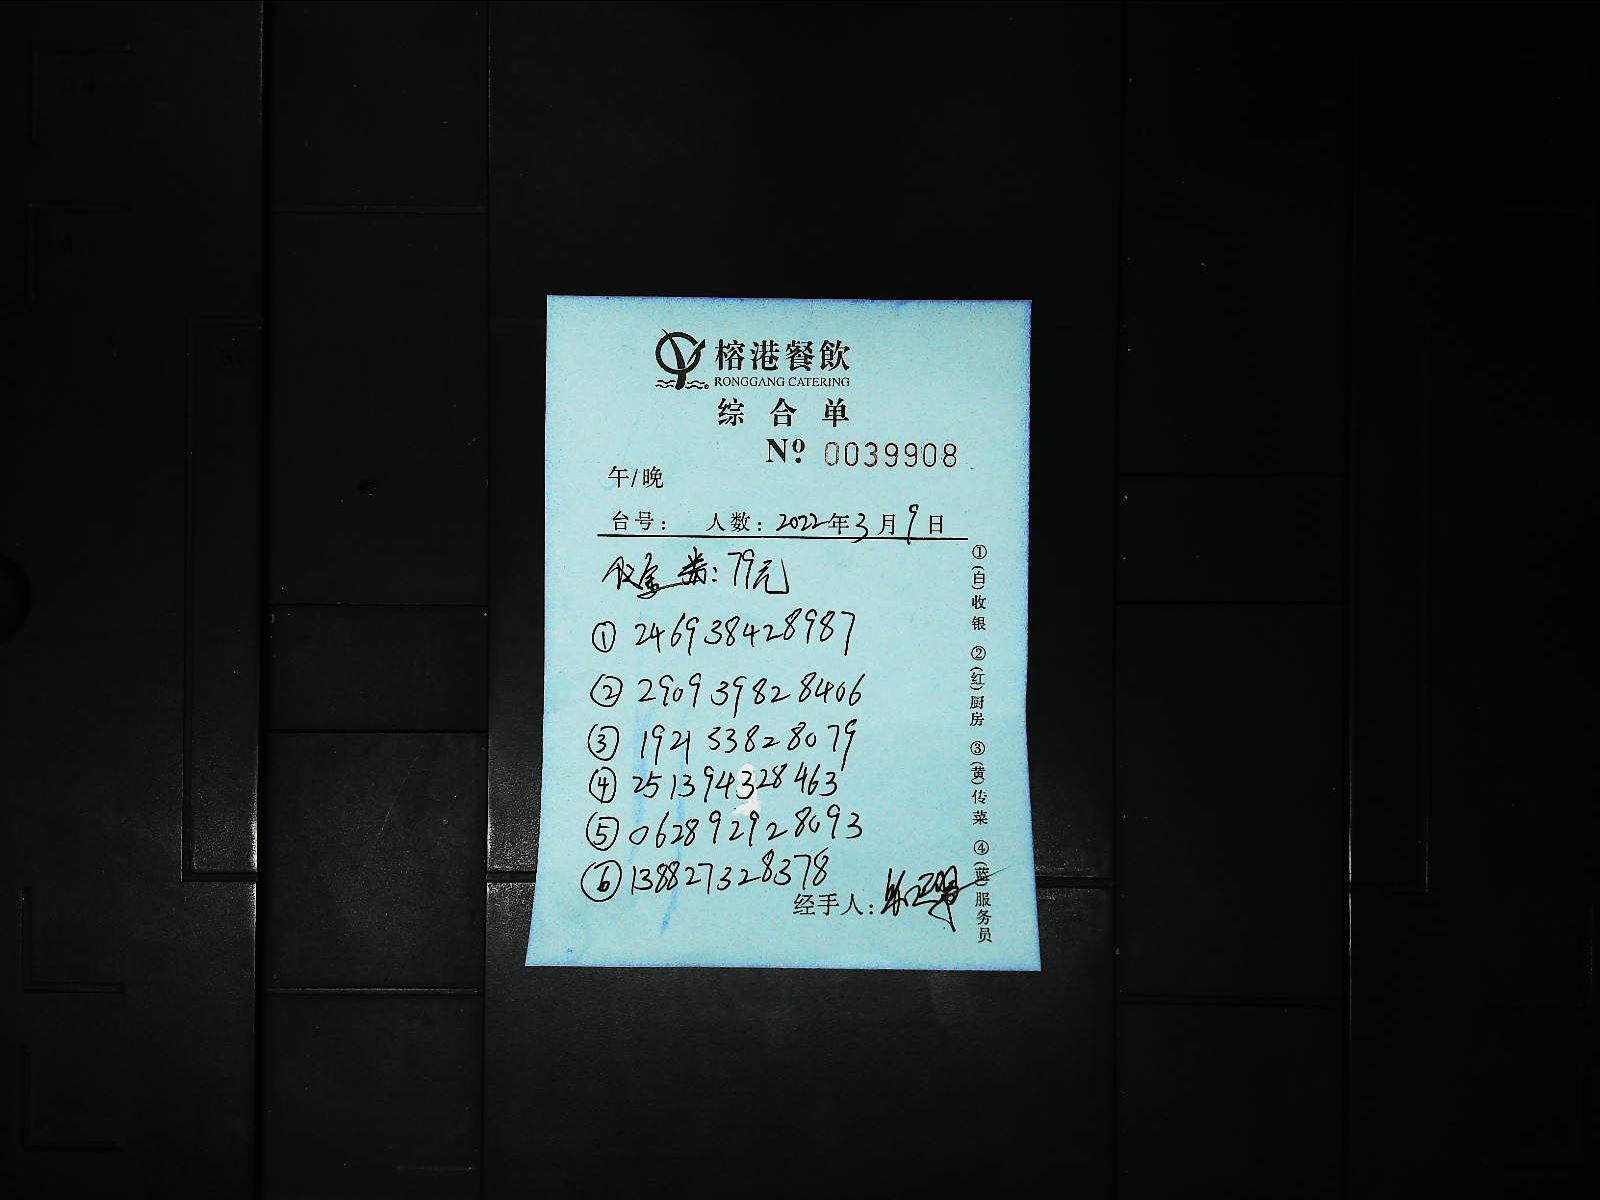 榕港餐飲
RONGGANG CATERING
综合单
Nº 0039908
午/晚
台号： 人数：2022年3月9日
金券：79元
① 246938428987
② 290939828406
③ 192153828079
④ 251394328463
⑤ 062892928093
⑥ 138827328378
经手人：
①(白)收银 ②(红)厨房 ③(黄)传菜 ④(蓝)服务员